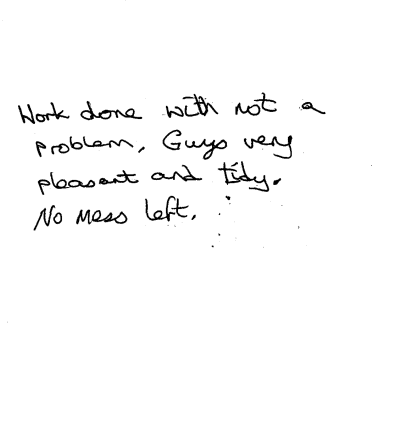 Work done with not a
problem, Guys very
pleasant and tidy.
No mess left.